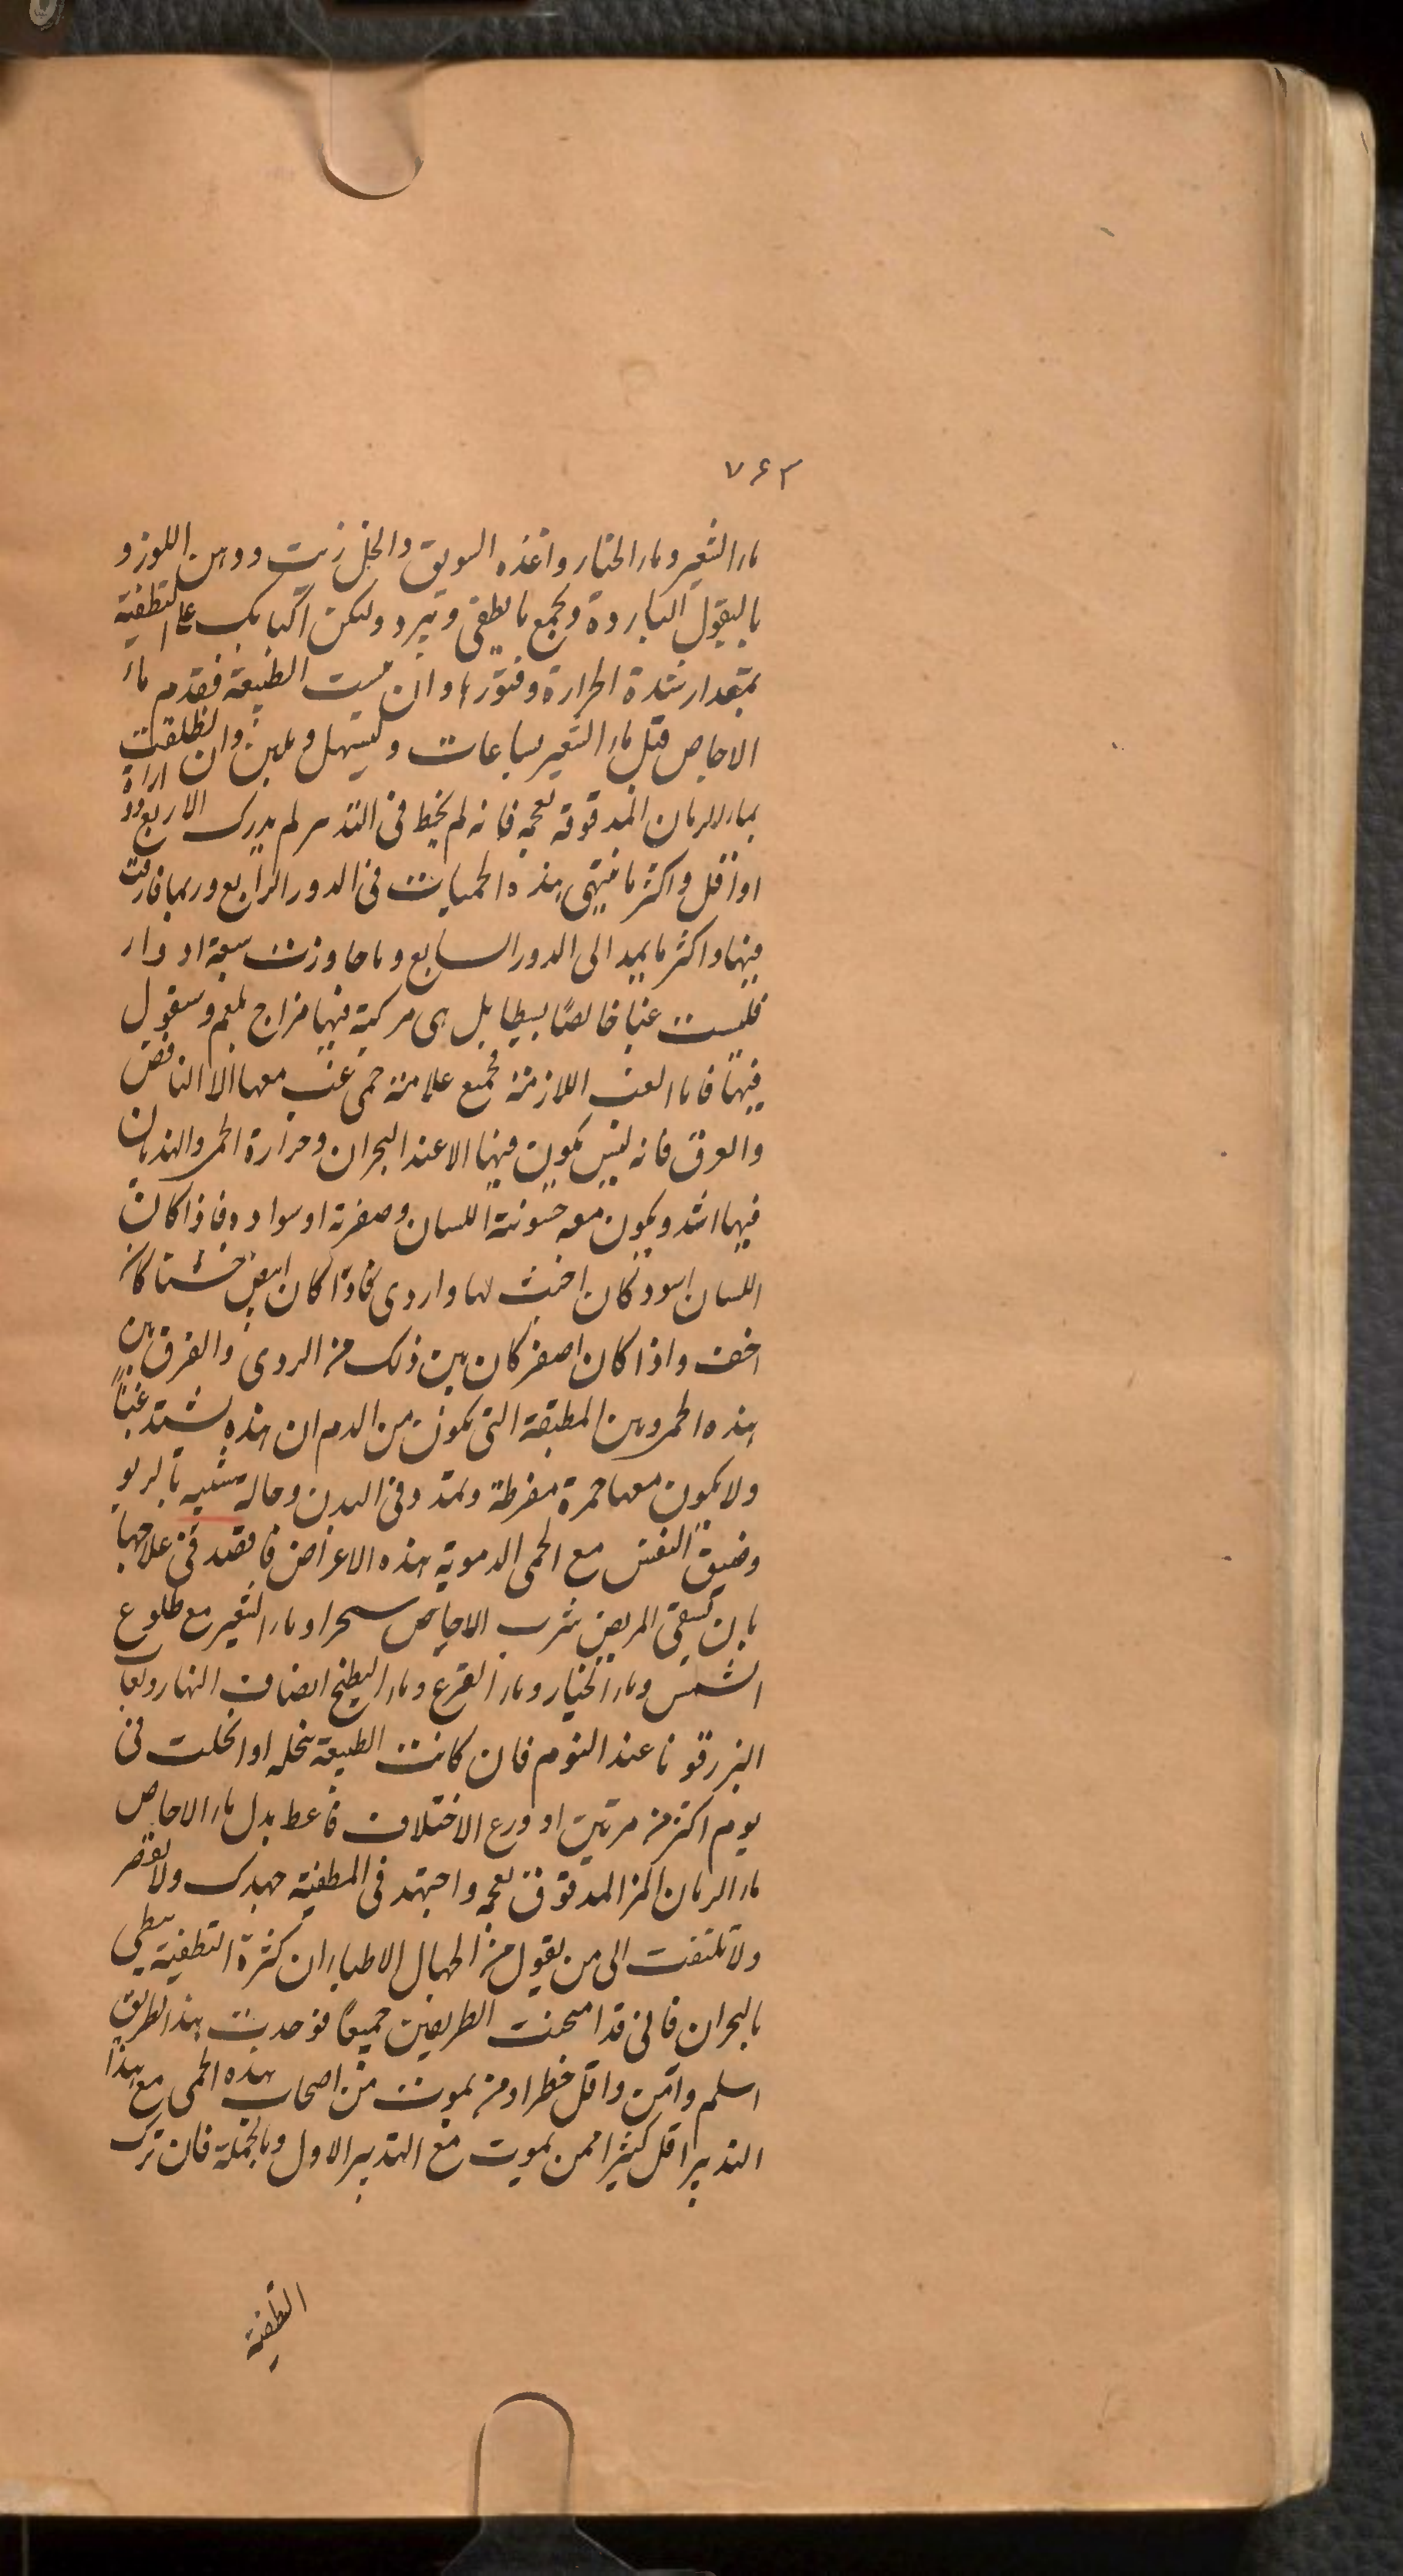 ٧٤٣
ماء الشعير وماء الخيار واغذه السويق والخل زيت ودهن اللوز و
بالبقول الباردة وبجميع ما يطفى ويبرد وليكن اكبابك على التطفية
بمقدار شدة الحرارة وفتورها وان يبست الطبيعة فقدم ماء
الاجاص قبل ماء الشعير بساعات ويسهل ويلين وان انطلقت
بماء الرمان المدقوقة بعجمه فانه لم يخط فى التدبير لم يدرك الا اربع ادوار
او اقل واكثر ما ينتهى هذه الحميات فى الدور الرابع وربما فارقت
فيها واكثر ما يمد الى الدور السابع وما جاوزت سبعة ادوار
فليست غبا خالصًا بسيطا بل هى مركبة فيها مزاج بلغم وسنقول
فيها فاما الغب اللازمة فجميع علامة حمى غب معها الا النافض
والعرق فانه ليس يكون فيها الا عند البحران وحرارة الحمى والهذيان
فيها اشد ويكون معه خشونة اللسان وصفرته او سواده فاذا كان
اللسان اسود كان اخبث لها واردى فاذا كان ابيض خشنا كان
اخف واذا كان اصفر كان بين ذلك من الردى والفرق بين
هذه الحمى وبين المطبقة التى يكون من الدم ان هذه يشتد غبًا
ولا يكون معها حمرة مفرطة وتمدد فى البدن وحالة شبيه بالربو
وضيق النفس مع الحمى الدموية هذه الاعراض فاقصد فى علاجها
بان تسقى المريض شرب الاجاص سحرا وماء الشعير مع طلوع
الشمس وماء الخيار وماء القرع وماء البطيخ انصاف النهار ولعاب
البزرقونا عند النوم فان كانت الطبيعة منحله او انحلت فى
يوم اكثر من مرتين او ورع الاختلاف فاعط بدل ماء الاجاص
ماء الرمان المز المدقوق بعجمه واجتهد فى المطفية جهدك ولا تقصر
ولا تلتفت الى من يقول من الجهال الاطباء ان كثرة التطفية يبطى
بالبحران فانى قد امتحنت الطريقين جميعًا فوجدت هذا الطريق
اسلم وآمن واقل خطرا ومن يموت من اصحاب هذه الحمى مع هذا
التدبير اقل كثيرا ممن يموت مع التدبير الاول وبالجملة فان ترك
التطفية